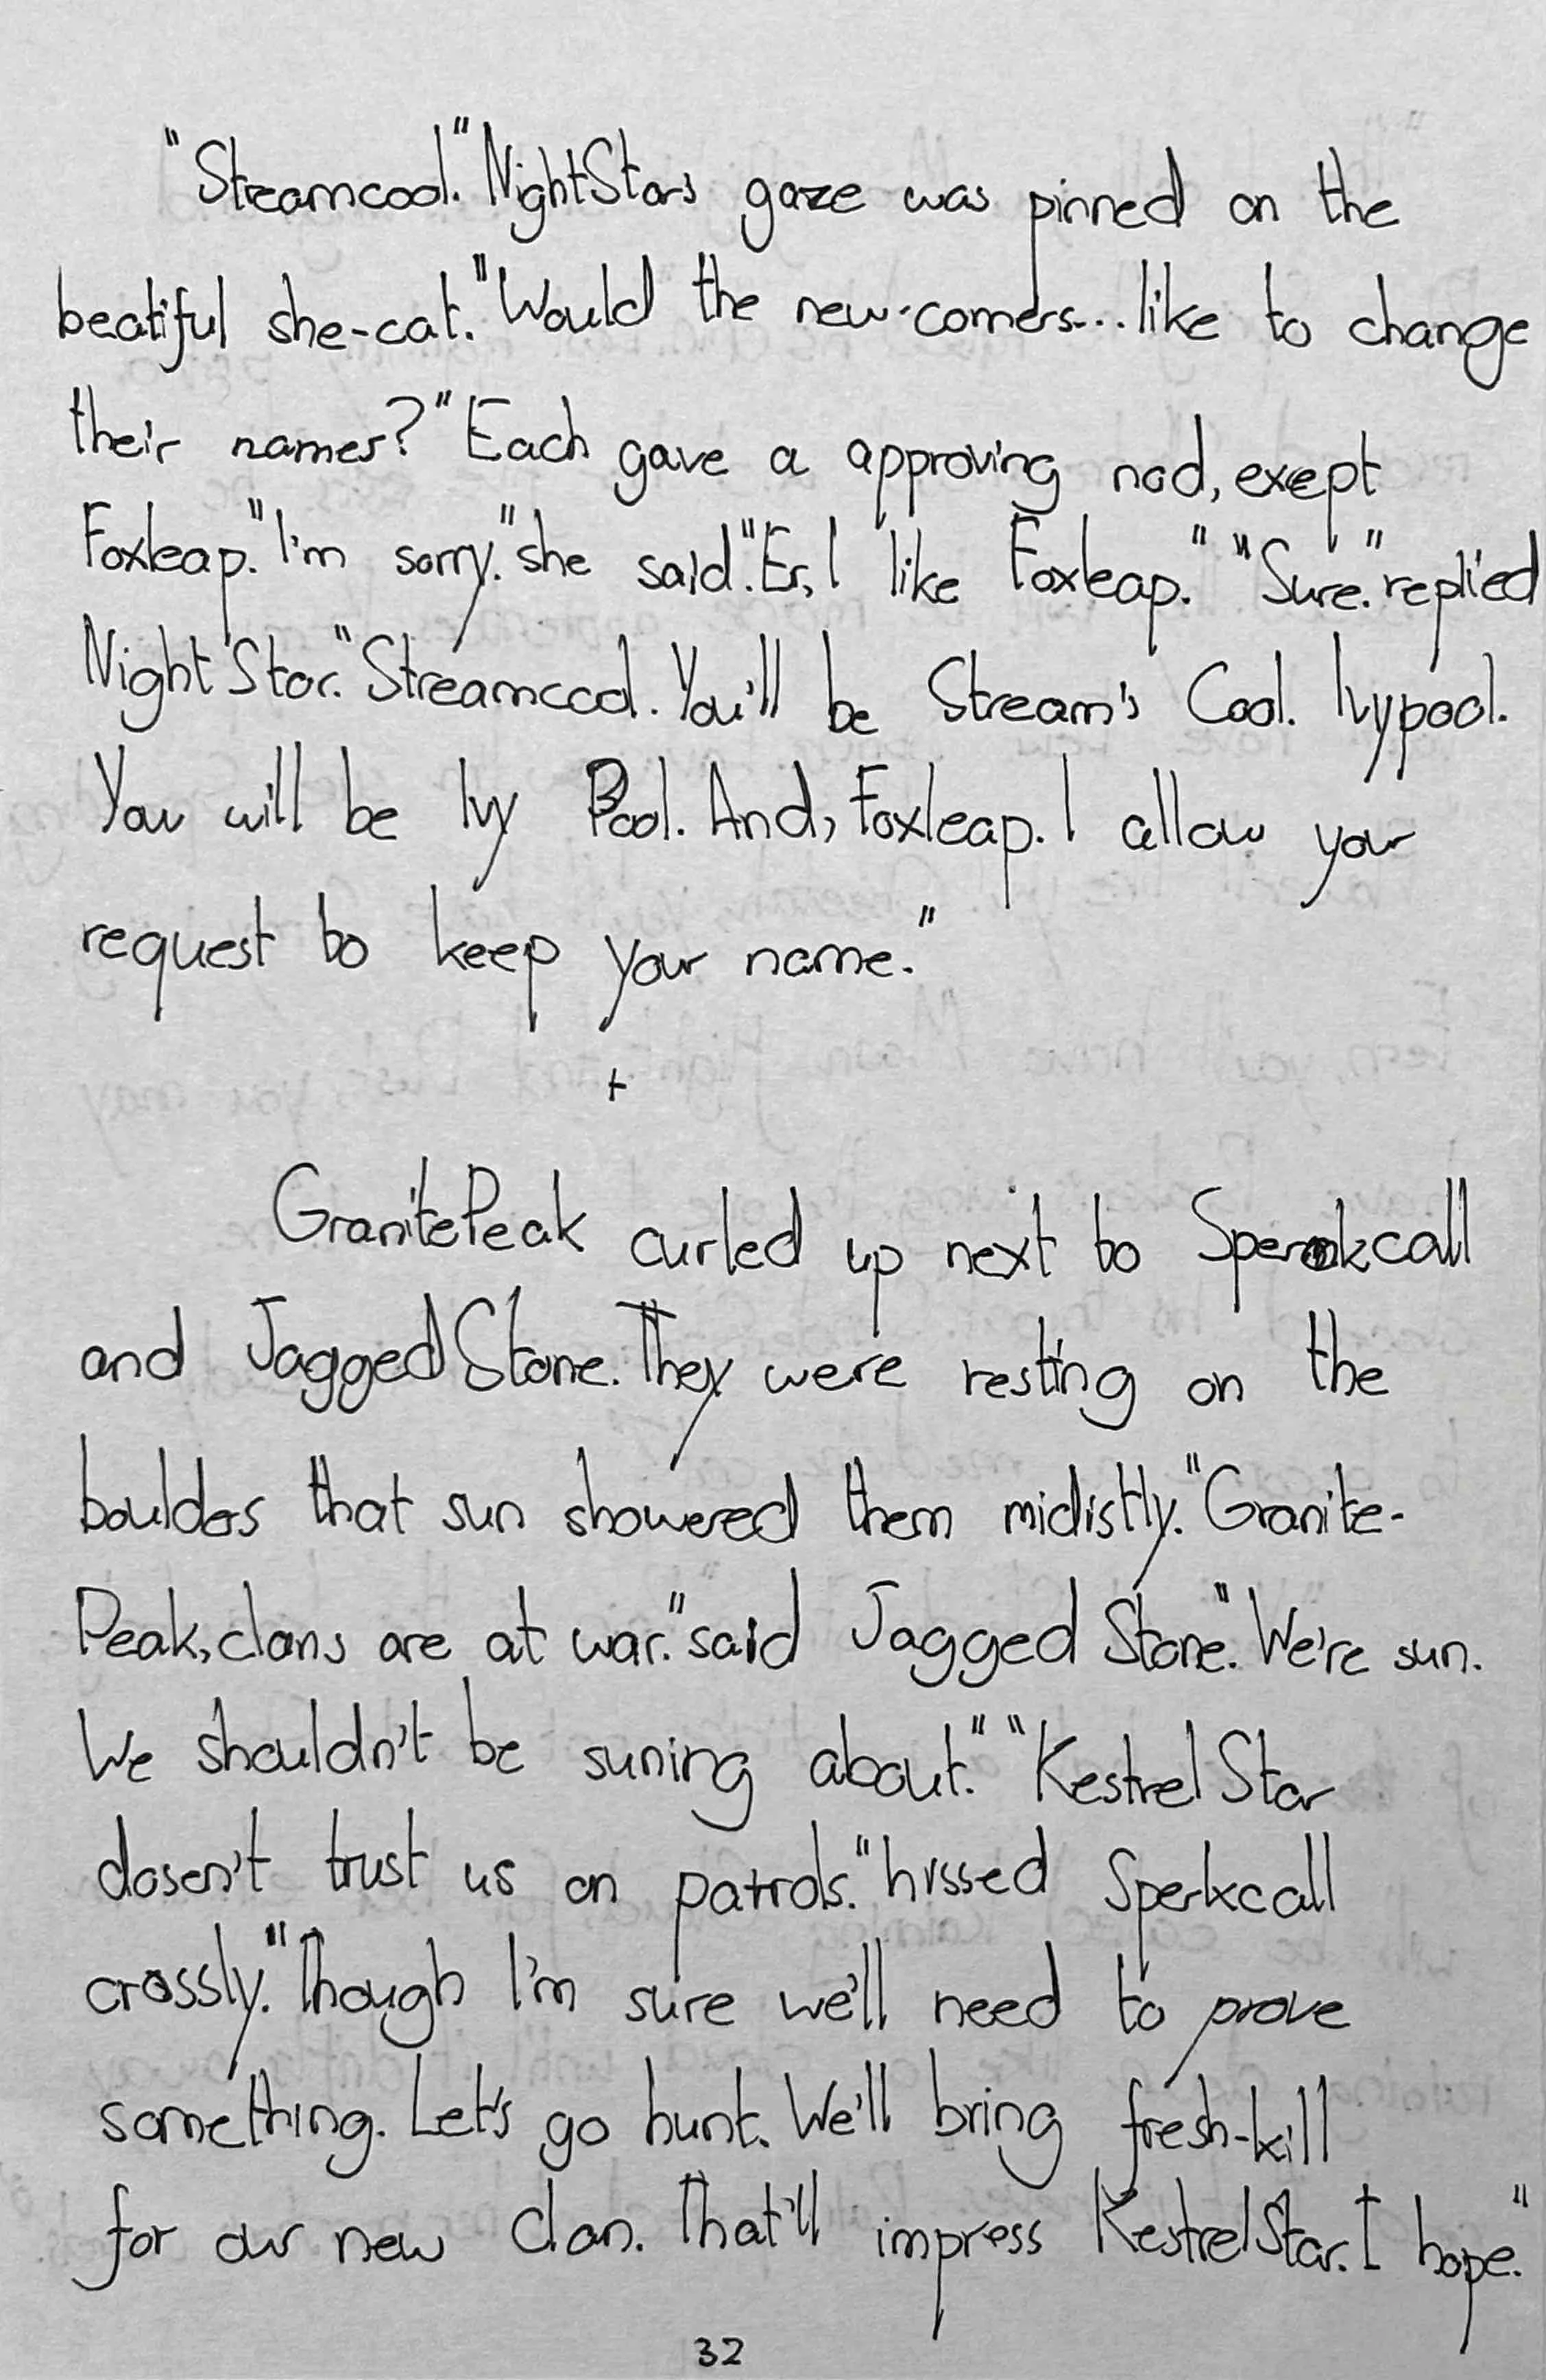 "Streamcool." NightStars gaze was pinned on the
beatiful she-cat. "Would the new-comers... like to change
their names?" Each gave a approving nod, exept
Foxleap. "I'm sorry." she said. "Er, I like Foxleap." "Sure." replied
NightStar. "Streamcool. You'll be Stream's Cool. Ivypool.
You will be Ivy Pool. And, Foxleap. I allow your
request to keep your name."
+
GranitePeak curled up next to
and JaggedStone. They were resting on the
boulders that sun showered them midistly. "Granite-
Peak, clans are at war." said Jagged Stone. "We're sun.
We shouldn't be suning about." "Kestrel Star
dosen't trust us on patrols." hissed Sperkcall
crossly. "Though I'm sure we'll need to prove
something. Let's go hunt. We'll bring fresh-kill
for our new clan. That'll impress KestrelStar. I hope."
32